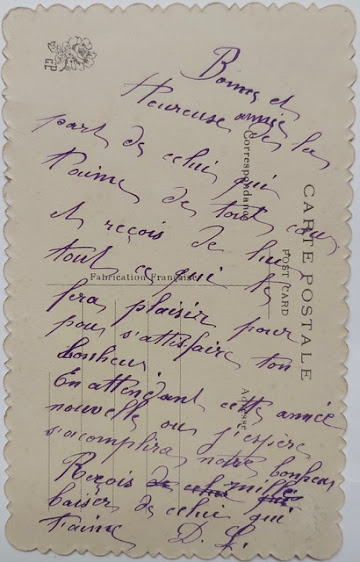 Bonne et
Heureuse année de la
part de celui qui
t'aime de tout cœur
et reçois de lui
tout ce qui te
fera plaisir pour
pour s'attisfaire ton
bonheur
En attendant cette année
nouvelle ou j'espère
s'acomplira notre bonheur
Reçois de celui mille qui
baiser de celui qui
t'aime D. L.
CARTE POSTALE
POST CARD
Correspondance
Adresse
Fabrication Française